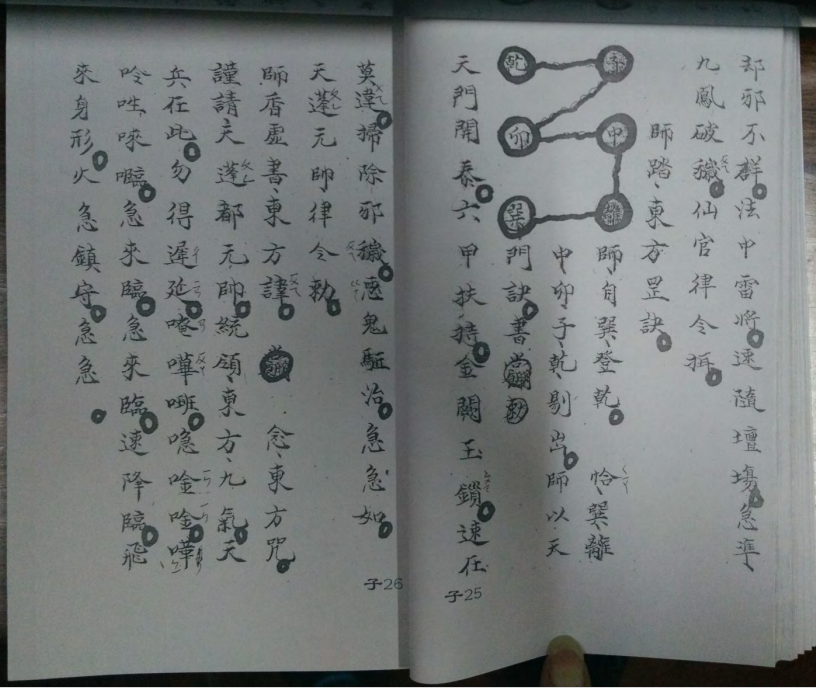 却邪不群法中雷將速隨壇場急準、
九鳳破穢仙官律令摂
師踏、東方罡訣
乾
卯
巽
中
離
師自巽、登乾、恰、巽離
中卯子乾、剔出師以天
門訣書
天門開泰六甲扶持金闕玉鎖速在
子25
莫違掃除邪穢惡鬼驅治急急如
天蓬元帥律令勅
師香虛書、東方諱 念、東方咒
謹請天蓬都元帥統領、東方、九氣天
兵在此勿得遲延唵嘩㘈唸唫唫嘩
吟㕽唻㘕急來臨急來臨速降臨飛
來身形火急鎮守急急
子26